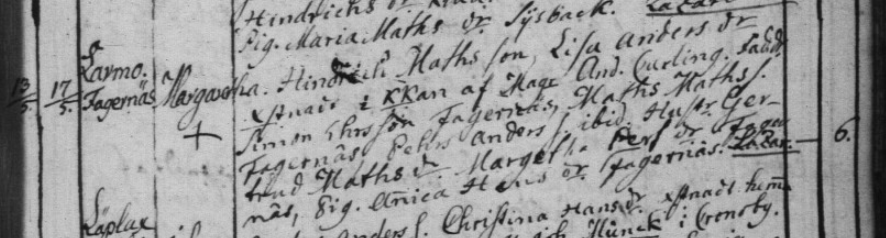 Hindrichs dr
Pig. Maria Maths dr. Sysback. Lazar
Larmo.
13/5 17/5 Fagernäs Margaretha. Hindrich Mathsson, Lisa Anders dr
xstnad i KKan af Mag: And. Curling. Fadd:
Simon Ehrsson Fagernäs, Maths Maths s.
Fagernäs, Pehr Anders s. ibid. Hustr. Ger-
trud Maths dr. Margetha Pers dr Fager
näs, Pig. Anica Hans dr. Fagernäs. Lazar. — 6.
Läplax Anders s. Christina Hans dr. xstnad. hem̄a
Munck i Cronoby.